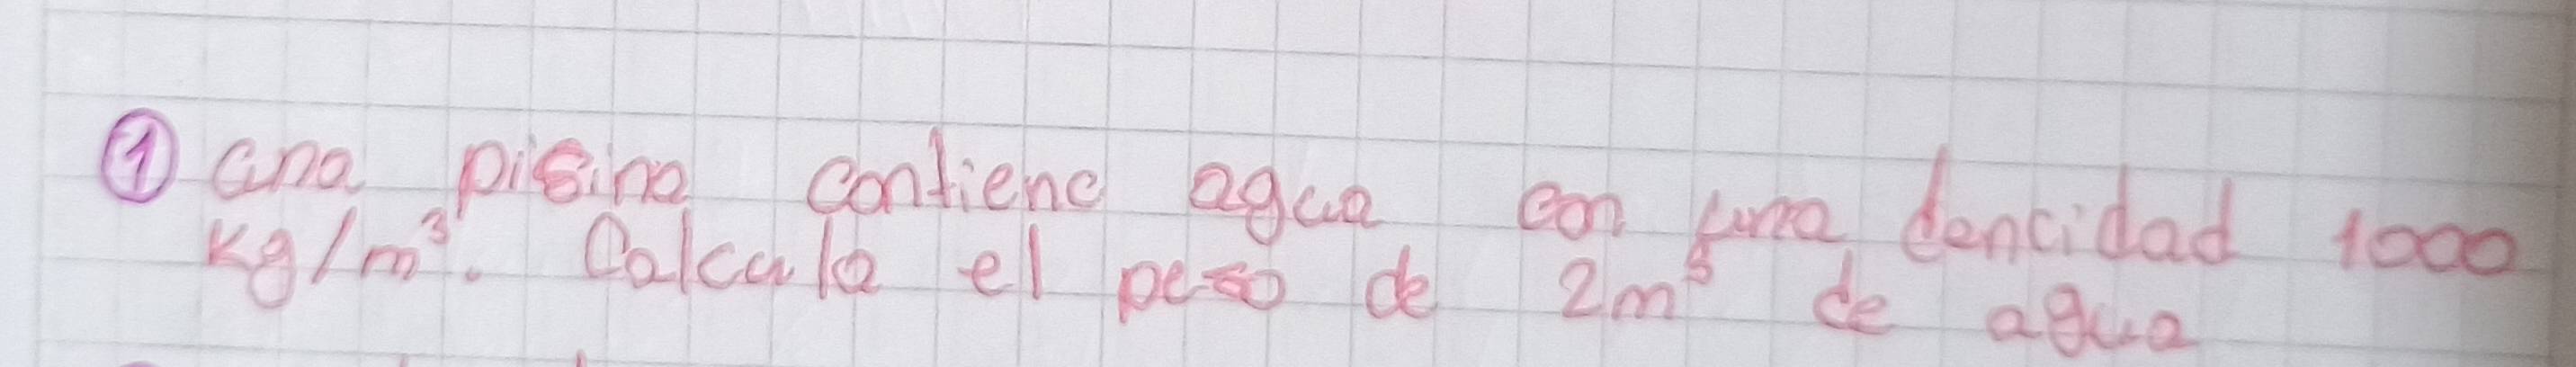 ① una pisina contiene agua con una dencidad 1000
Kg/m³. Calcula el peso de 2m³ de agua